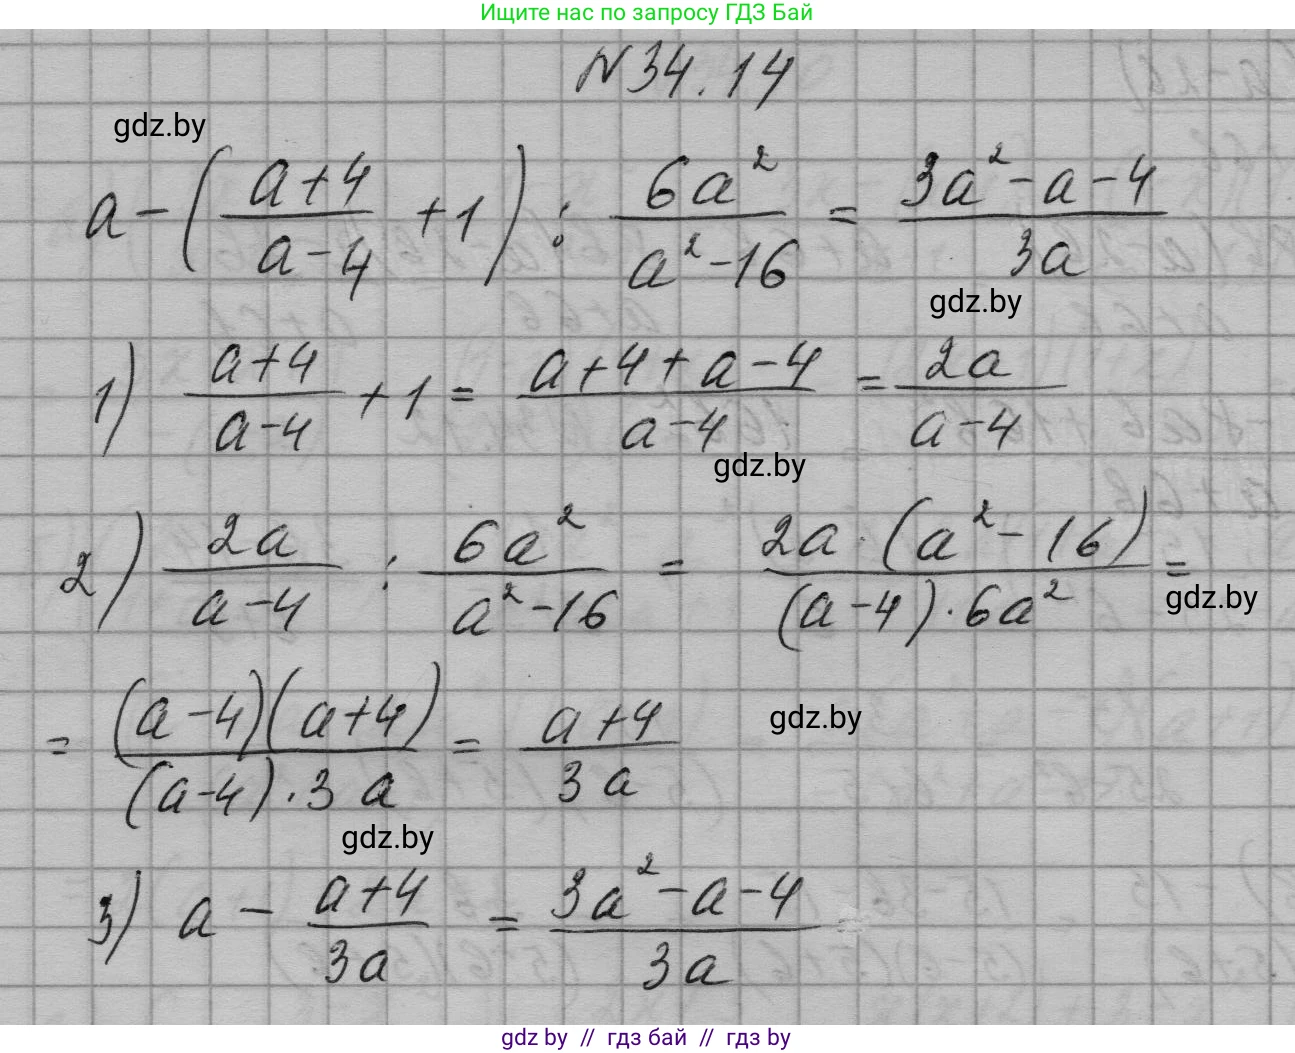 Ищите нас по запросу ГДЗ Бай
N 34.14
gdz.by
a - ( (a+4)/(a-4) + 1 ) : 6a²/(a²-16) = (3a²-a-4)/(3a)
gdz.by
1) (a+4)/(a-4) + 1 = (a+4+a-4)/(a-4) = 2a/(a-4)
gdz.by
2) 2a/(a-4) : 6a²/(a²-16) = (2a·(a²-16))/((a-4)·6a²) =
gdz.by
= ((a-4)(a+4))/((a-4)·3a) = (a+4)/(3a)
gdz.by
gdz.by
3) a - (a+4)/(3a) = (3a²-a-4)/(3a)
gdz by // гдз бай // гдз by